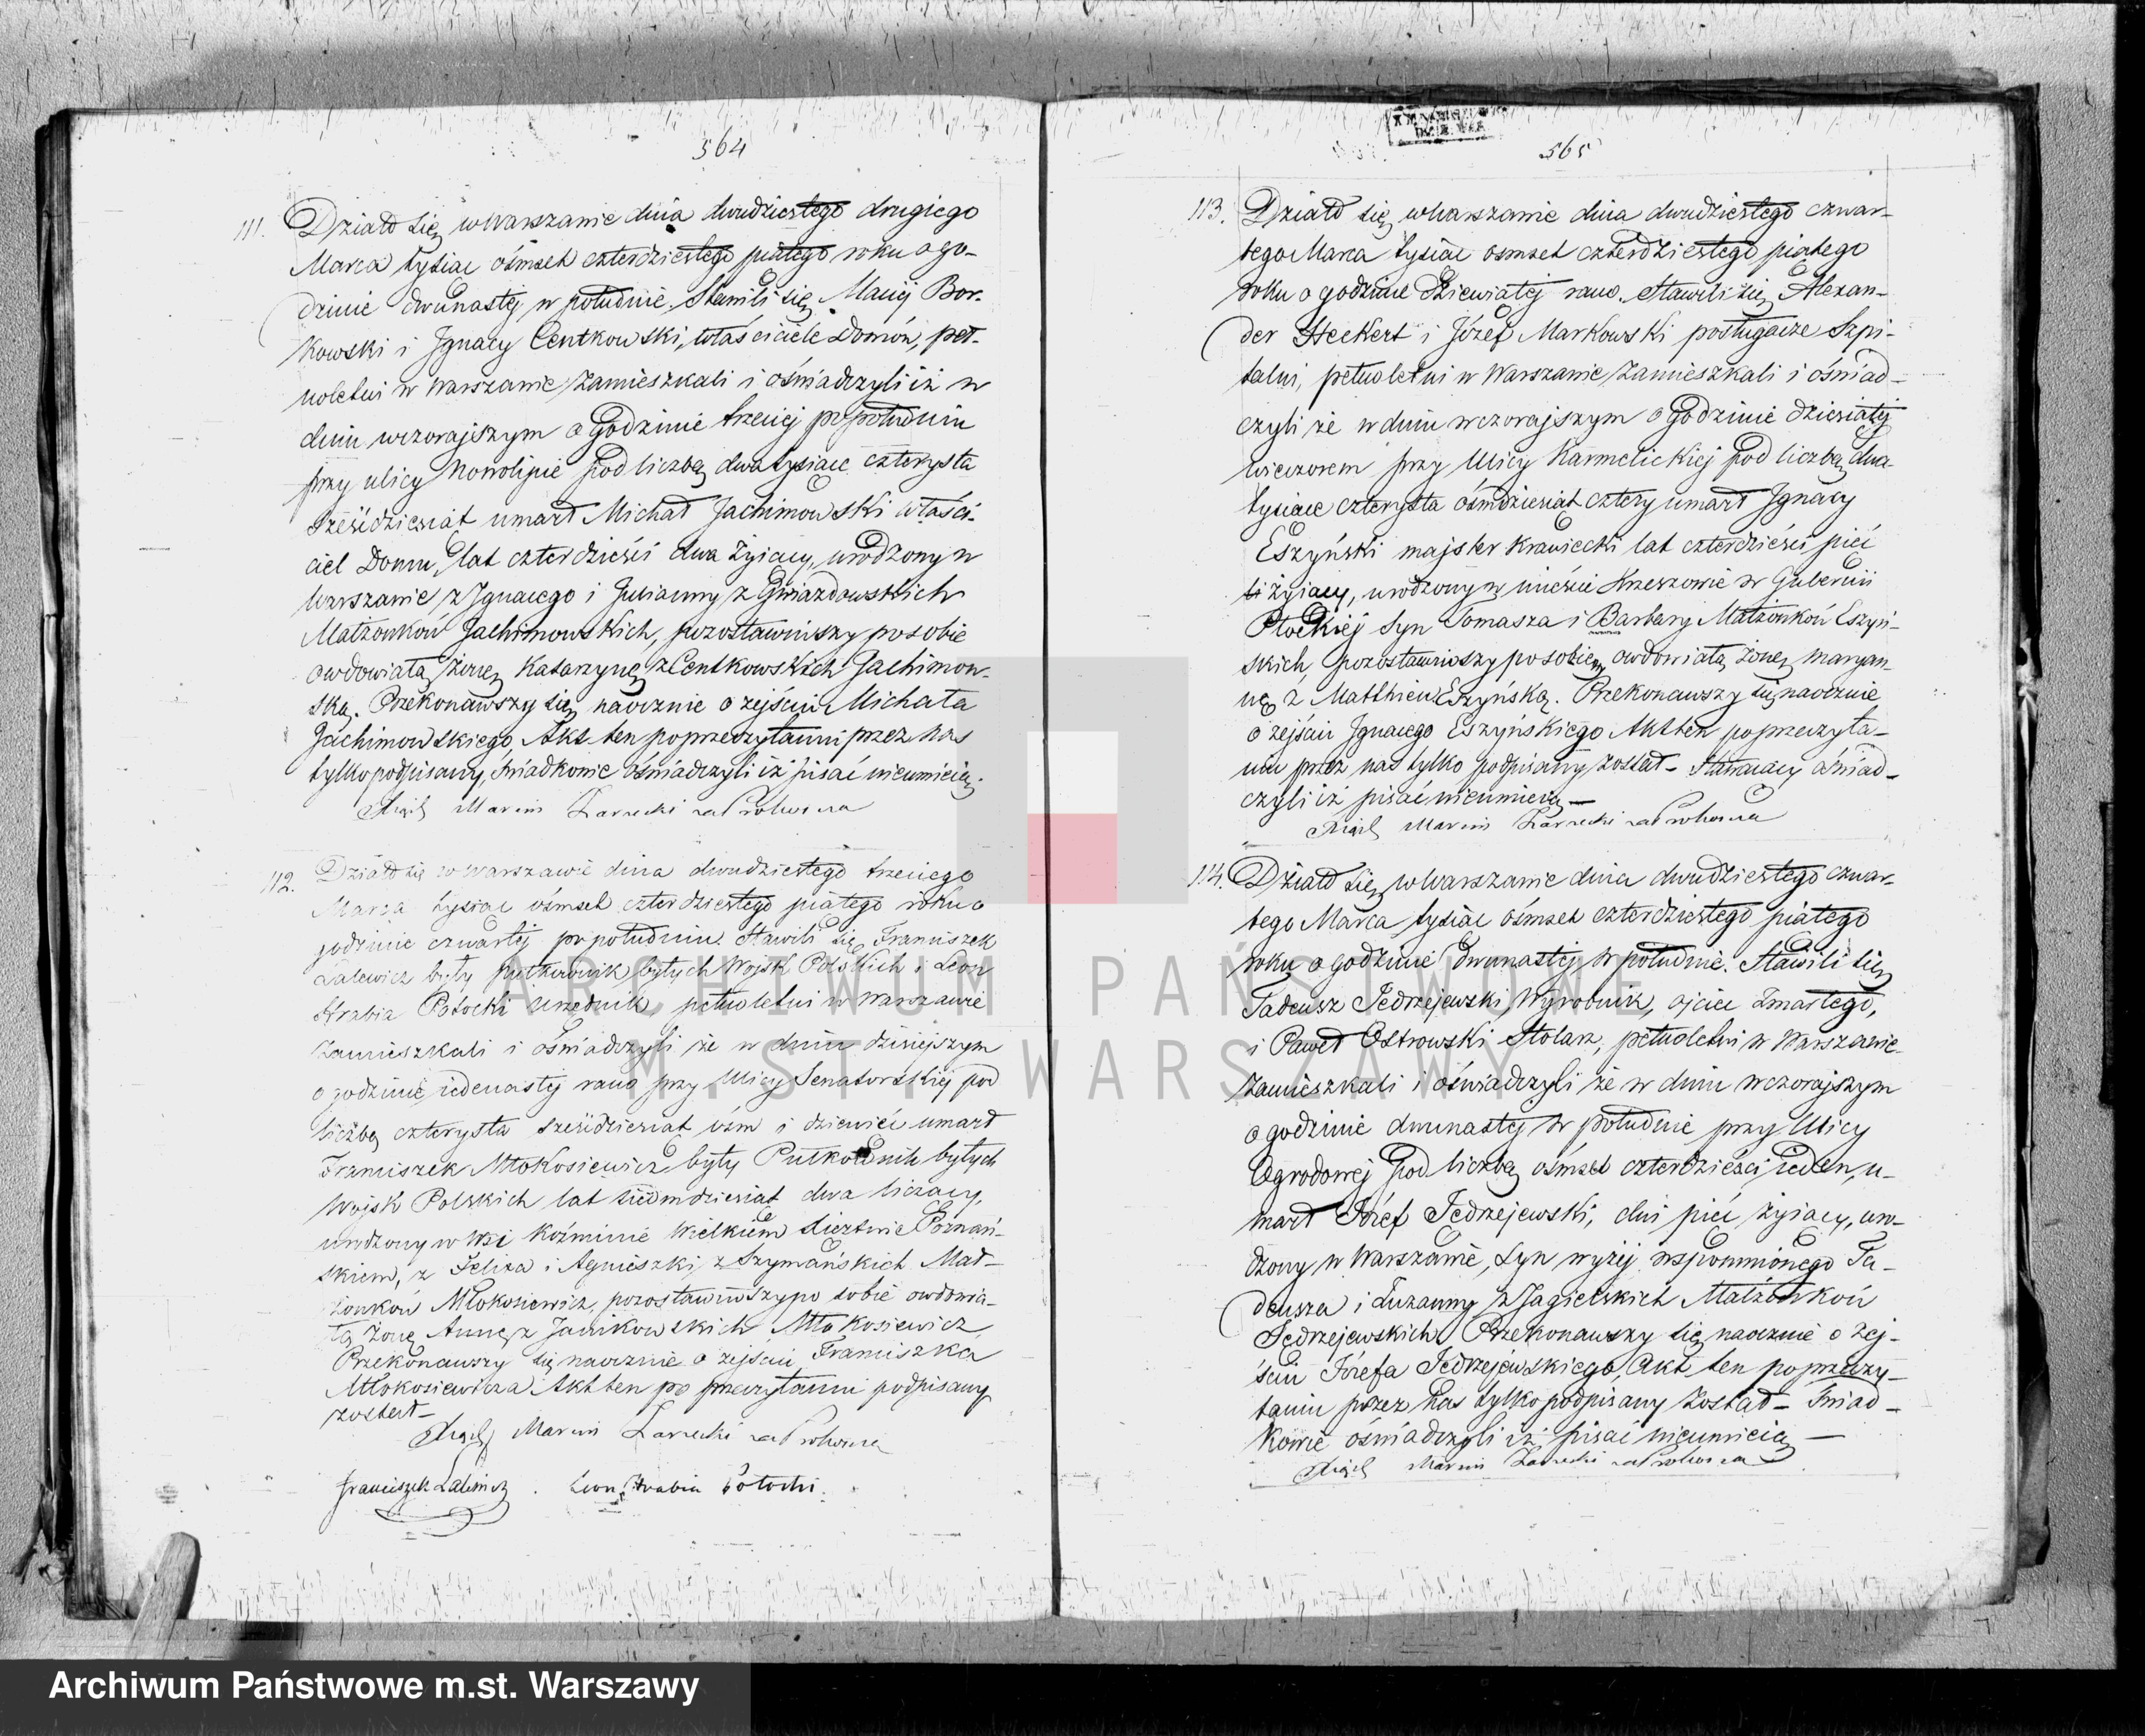 564
111. Działo się w Warszawie dnia dwudziestego drugiego
Marca tysiąc ośmset czterdziestego piątego roku o go-
dzinie dwunastej w południe. Stawili się Maciej Bor-
kowski i Ignacy Centkowski, właściciele Domów, peł-
noletni w Warszawie zamieszkali i oświadczyli iż w
dniu wczorajszym o godzinie trzeciej po południu
przy ulicy Nowolipie pod liczbą dwa tysiące czterysta
sześćdziesiąt umarł Michał Jachimowski właści-
ciel Domu, lat czterdzieści dwa żyjący, urodzony w
Warszawie z Ignacego i Julianny z Gwiazdowskich
Małżonków Jachimowskich, pozostawiwszy po sobie
owdowiałą żonę Katarzynę z Centkowskich Jachimow-
ską. Przekonawszy się naocznie o zejściu Michała
Jachimowskiego, Akt ten po przeczytaniu przez nas
tylko podpisany, świadkowie oświadczyli iż pisać nieumieją.
Marcin za Proboszcza
112. Działo się w Warszawie dnia dwudziestego trzeciego
Marca tysiąc ośmset czterdziestego piątego roku o
godzinie czwartej po południu. Stawili się Franciszek
Lalewicz były Pułkownik byłych Wojsk Polskich i Leon
Hrabia Potocki Urzędnik, pełnoletni w Warszawie
zamieszkali i oświadczyli że w dniu dzisiejszym
o godzinie jedenastej rano przy Ulicy Senatorskiej pod
liczbą czterysta sześćdziesiąt ośm i dziewięć umarł
Franciszek Młokosiewicz były Pułkownik byłych
Wojsk Polskich lat siedmdziesiąt dwa liczący,
urodzony w Wsi Koźminie Wielkiem Xięztwie Poznań-
skiem, z Felixa i Agnieszki z Szymańskich Mał-
żonków Młokosiewicz, pozostawiwszy po sobie owdowia-
łą żonę Annę z Janikowskich Młokosiewicz
Przekonawszy się naocznie o zejściu Franciszka
Młokosiewicza Akt ten po przeczytaniu podpisany
został-
Marcin za Proboszcza
Franciszek Lalewicz. Leon Hrabia Potocki.
565
113. Działo się w Warszawie dnia dwudziestego czwar-
tego Marca tysiąc ośmset czterdziestego piątego
roku o godzinie dziewiątej rano. Stawili się Alexan-
der Heckert i Józef Markowski posługacze Szpi-
talni, pełnoletni w Warszawie zamieszkali i oświad-
czyli że w dniu wczorajszym o godzinie dziesiątej
wieczorem przy Ulicy Karmelickiej pod liczbą dwa
tysiące czterysta ośmdziesiąt cztery umarł Ignacy
Eszyński majster krawiecki lat czterdzieści pięć
żyjący, urodzony w mieście Krzeszowie w Gubernii
Płockiej Syn Tomasza i Barbary Małżonków Eszyń-
skich, pozostawiwszy po sobie owdowiałą żonę Maryan-
nę z Matthieu Eszyńską. Przekonawszy się naocznie
o zejściu Ignacego Eszyńskiego Akt ten po przeczyta-
niu przez nas tylko podpisany został- Stawający oświad-
czyli iż pisać nieumieją-
Marcin za Proboszcza
114. Działo się w Warszawie dnia dwudziestego czwar-
tego Marca tysiąc ośmset czterdziestego piątego
roku o godzinie dwunastej w południe. Stawili się
Tadeusz Jędrzejewski, Wyrobnik, ojciec Zmarłego,
i Paweł Ostrowski Stolarz, pełnoletni w Warszawie
zamieszkali i oświadczyli że w dniu wczorajszym
o godzinie dwunastej w południe przy Ulicy
Ogrodowej pod liczbą ośmset czterdzieści jeden, u-
marł Józef Jędrzejewski, dni pięć żyjący, uro-
dzony w Warszawie, Syn wyżej wspomnionego Ta-
deusza i Zuzanny z Jagielskich Małżonków
Jędrzejewskich. Przekonawszy się naocznie o zej-
ściu Józefa Jędrzejewskiego, Akt ten po przeczy-
taniu przez nas tylko podpisany został- Świad-
kowie oświadczyli iż pisać nieumieją-
Marcin za Proboszcza
ARCHIWUM PAŃSTWOWE
M.ST. WARSZAWY
Archiwum Państwowe m.st. Warszawy